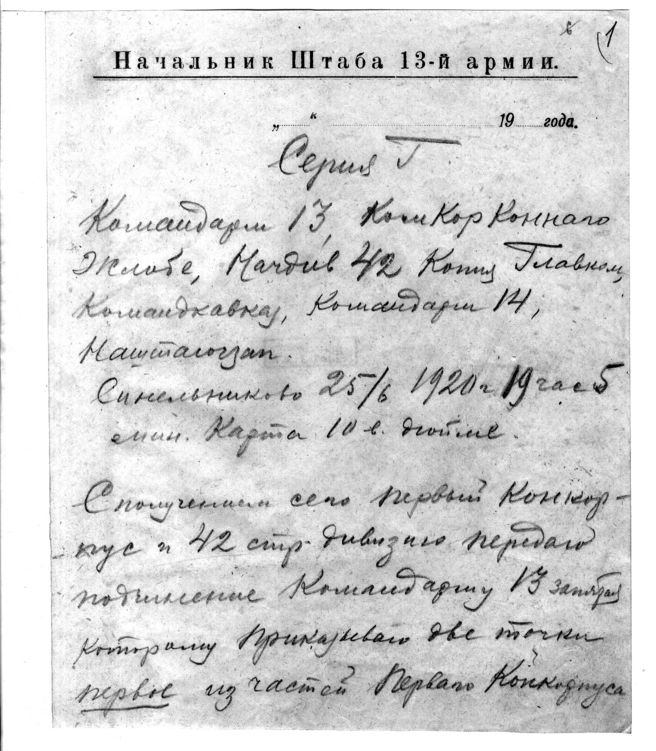 1
Начальник Штаба 13-й армии.
„ “ 19 года.
Серия Г
Командарм 13, КомКор Коннаго
Жлобе, Начдив 42 Копия Главком,
Командкавказ, Командарм 14,
Наштаюгзап.
Синельниково 25/6 1920 г 19 час 5
мин. Карта 10 в. дюйме.
С получением сего первый Конкор-
пус и 42 стр. дивизию передаю
подчинение Командарму 13 запятая
которому приказываю две точки
первое из частей Перваго Конкорпуса